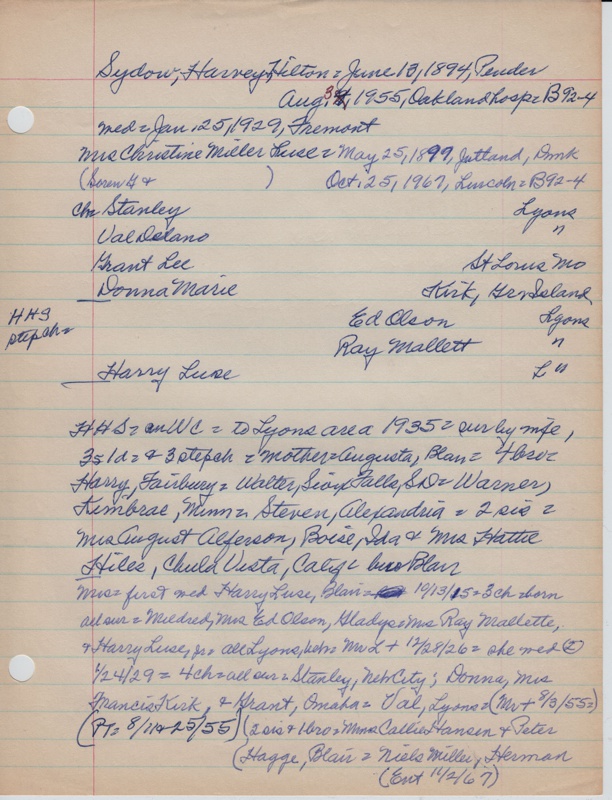 Sydow, Harvey Hilton = June 13, 1894, Pender
Aug. 3, 1955, Oakland hosp = B92-4
med = Jan. 25, 1929, Fremont
Mrs Christine Miller Luse = May 25, 1897, Jutland, Dmk
(Soren G & ) Oct. 25, 1967, Lincoln = B92-4
Chn Stanley Lyons
Val Delano "
Grant Lee St Louis Mo
Donna Marie Kirk, Gr. Island
HHS
stepch = Ed Olson Lyons
Ray Mallett "
Harry Luse L "
HHS = on WC = to Lyons area 1935 = sur by wife,
3s 1d = & 3 stepch = mother = Augusta, Blair = 4 bro =
Harry, Fairbury = Walter, Sioux Falls, SD = Warner,
Kimbrae, Minn = Steven, Alexandria = 2 sis =
Mrs August Alferson, Boise, Ida & Mrs Hattie
Hiles, Chula Vista, Calif = bur Blair
Mrs = first med Harry Luse, Blair = 10/13/15 = 3 ch = born
all sur = Mildred, Mrs Ed Olson, Gladys = Mrs Ray Mallette,
& Harry Luse, jr = all Lyons, Mr L + 12/28/26 = she med (2)
1/24/29 = 4 ch = all sur = Stanley, Neb City; Donna, Mrs
Francis Kirk, & Grant, Omaha = Val, Lyons = (Mr + 8/3/55 =)
(Pt = 8/11 & 25/55) (2 sis & 1 bro = Mmes Callie Hansen & Peter
(Hagge, Blair = Niels Miller, Herman
(Ent 11/2/67)